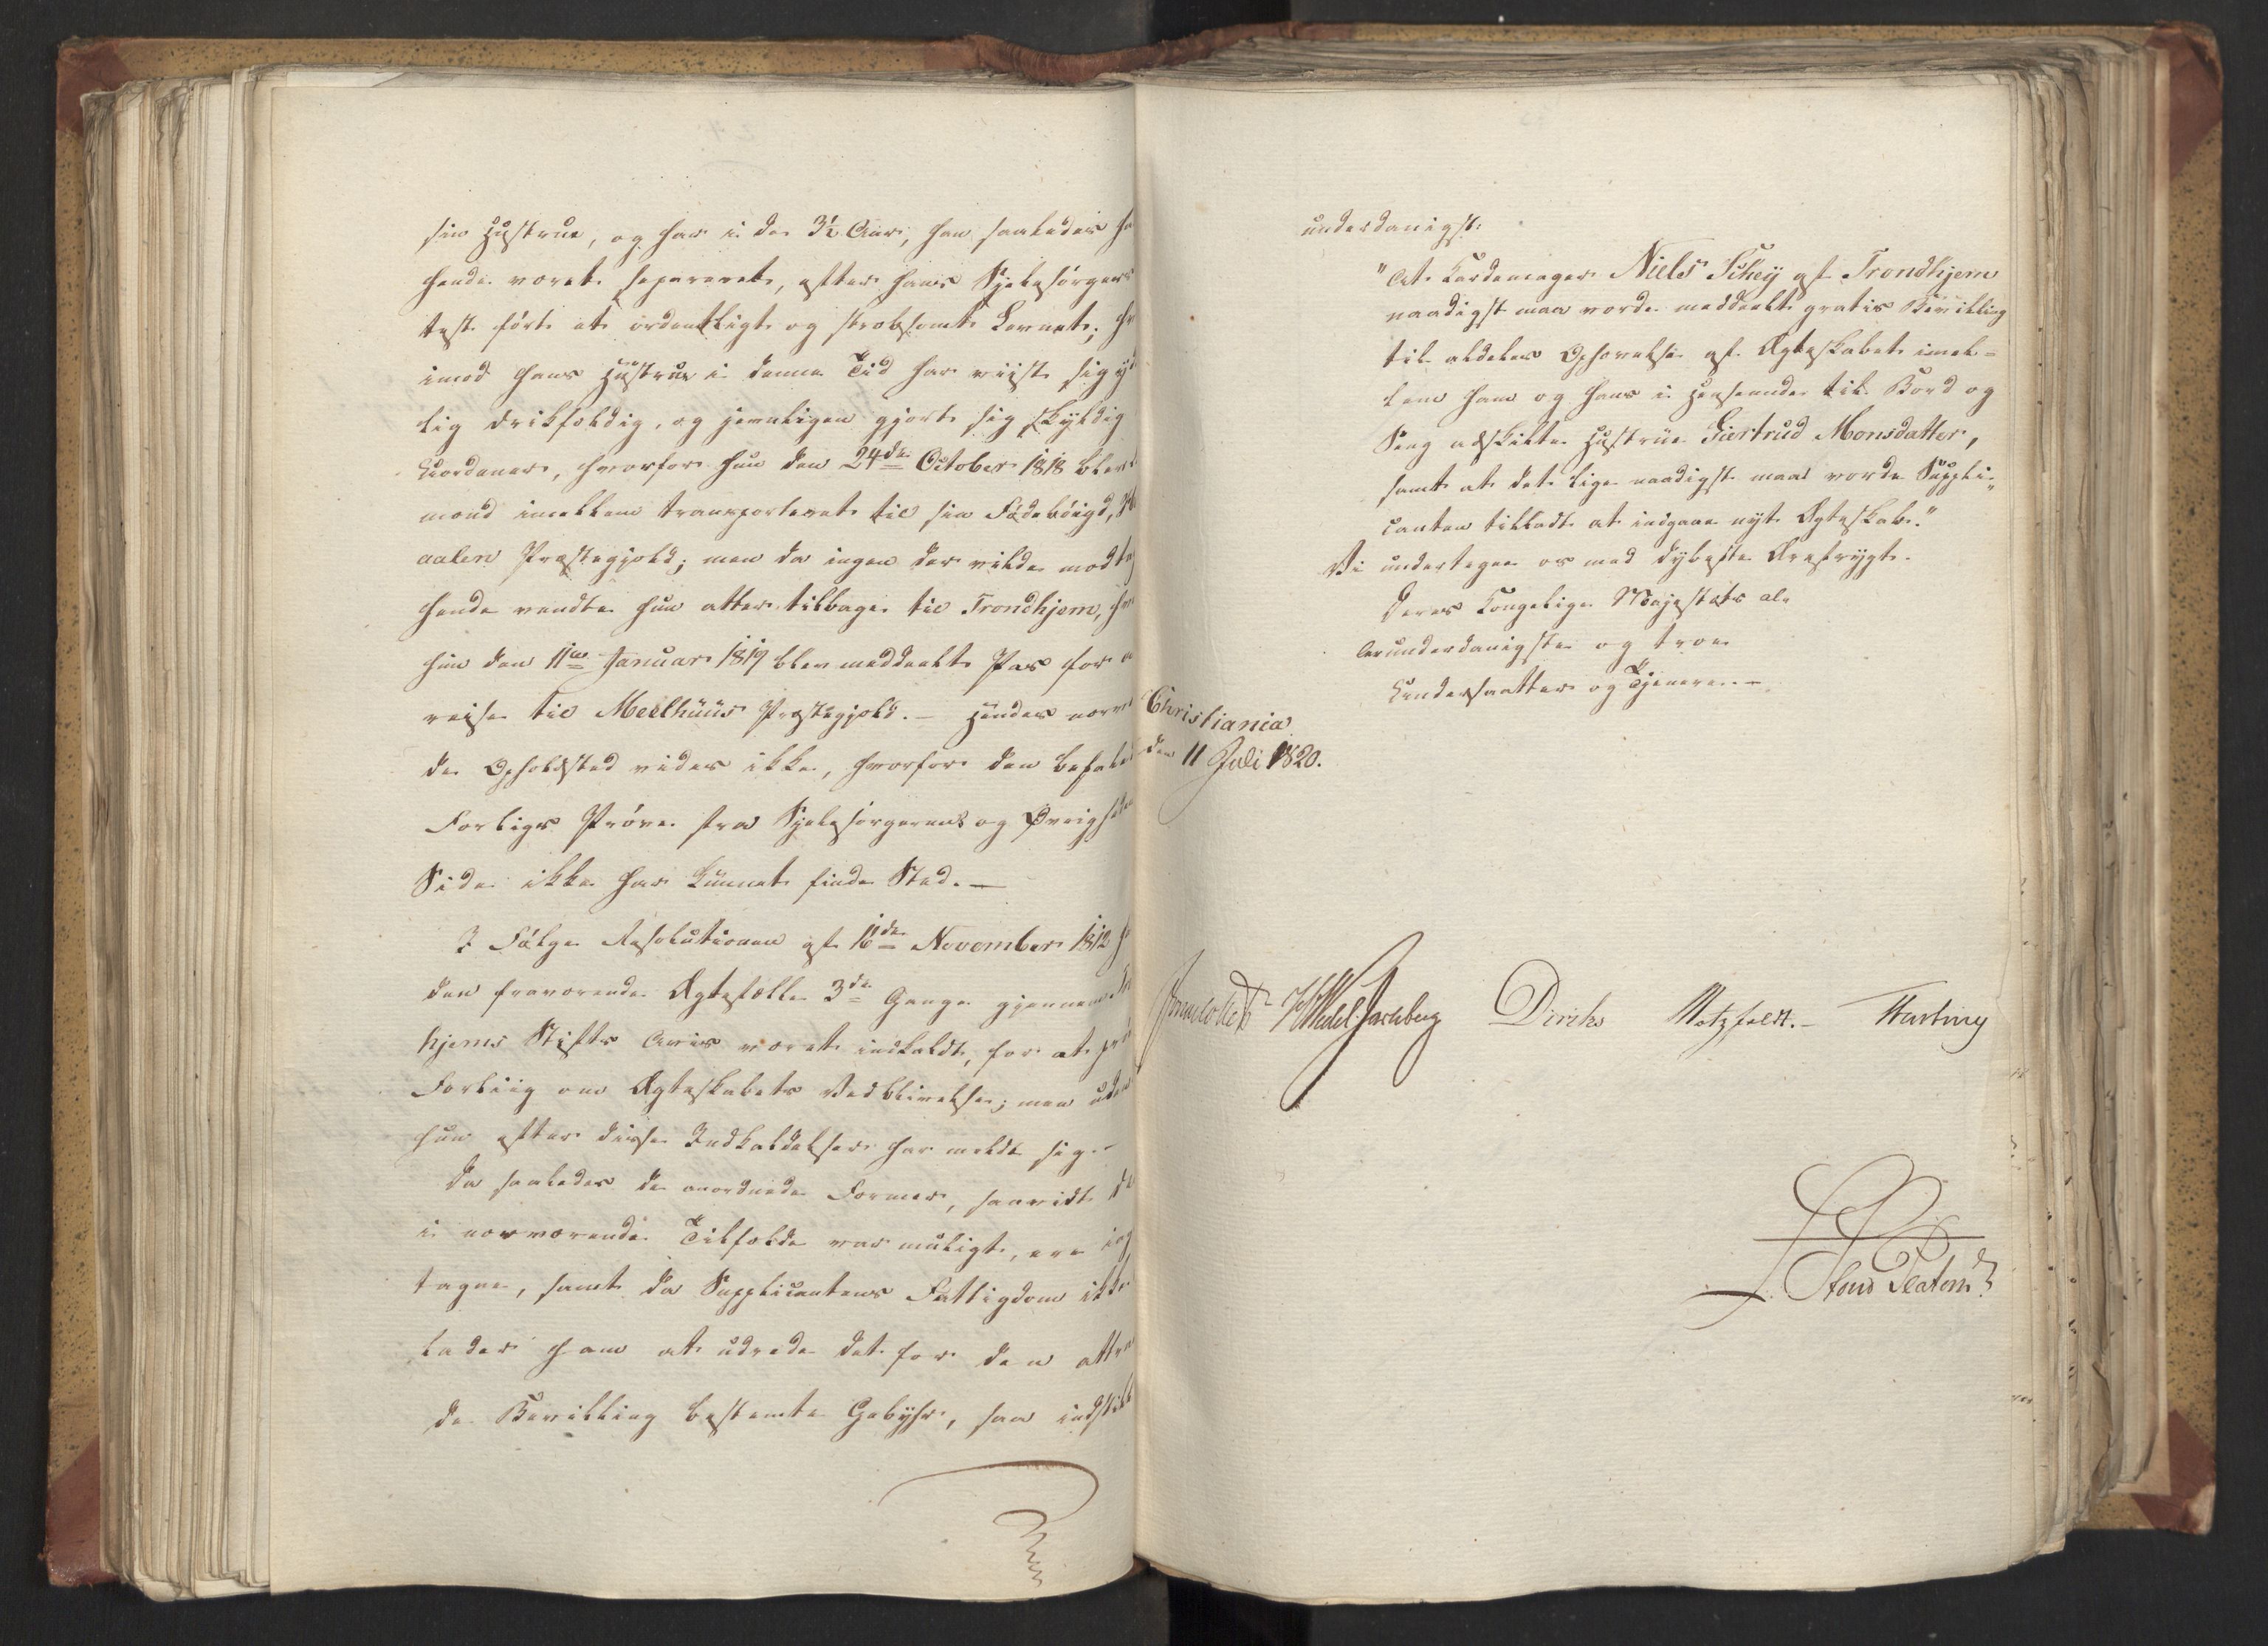 sin Hustrue, og har i de 3½ Aar, han saaledes fra
hende været separeret, efter hans Sjelesørgers
test ført et ordentligt og stræbsomt Levnet; hv
imod hans Hustrue i denne Tid har viist sig yd
lig drikfældig, og jevnligen gjort sig skyldig
Uordener, hvorfor hun den 24de October 1818 blev
mand imellem transporteret til sin Fødebøigd,
aalen Præstegjeld; men da ingen der vilde modtag
hende vendte hun atter tilbage til Trondhjem, hvor
hun den 11te Januar 1819 blev meddeelt Pas for a
reise til Meelhuus Præstegjeld. – Hendes nærv
de Opholdsted vides ikke, hvorfor den befalede
Forligs Prøve fra Sjelesørgerens og Øvrigheden
Side ikke har kunnet finde Sted. –
I Følge Resolutionen af 16de November 1812 h
den fraværende Ægtefælle 3de Gange gjennem Tr
hjems Stifts Avis været indkaldt, for at prø
Forliig om Ægteskabets Vedblivelse; men uden
hun efter disse Indkaldelser har meldt sig. –
Da saaledes de anordnede Former, saavidt de
i nærværende Tilfælde var muligt, ere iag
tagne, samt da Supplicantens Fattigdom ikke
lader ham at udrede det for den attraa
de Bevilling bestemte Gebyhr, saa indstill
underdanigst:
"At Kardemager Niels Schey af Trondhjem
naadigst maa vorde meddeelt gratis Bevilling
til aldeles Ophævelse af Ægteskabet imel=
lem ham og hans i Henseende til Bord og
Seng adskilte Hustrue Giertrud Monsdatter,
samt at det lige naadigst maa vorde Suppli=
canten tilladt at indgaae nyt Ægteskab."
Vi undertegne os med dybeste Ærefrygt.
Deres Kongelige Majestæts al=
lerunderdanigste og troe
Undersaatter og Tjenere. –
Christiania
den 11 Juli 1820.
Sommerhielm HWedel Jarlsberg Diriks Motzfeldt. – Fasting